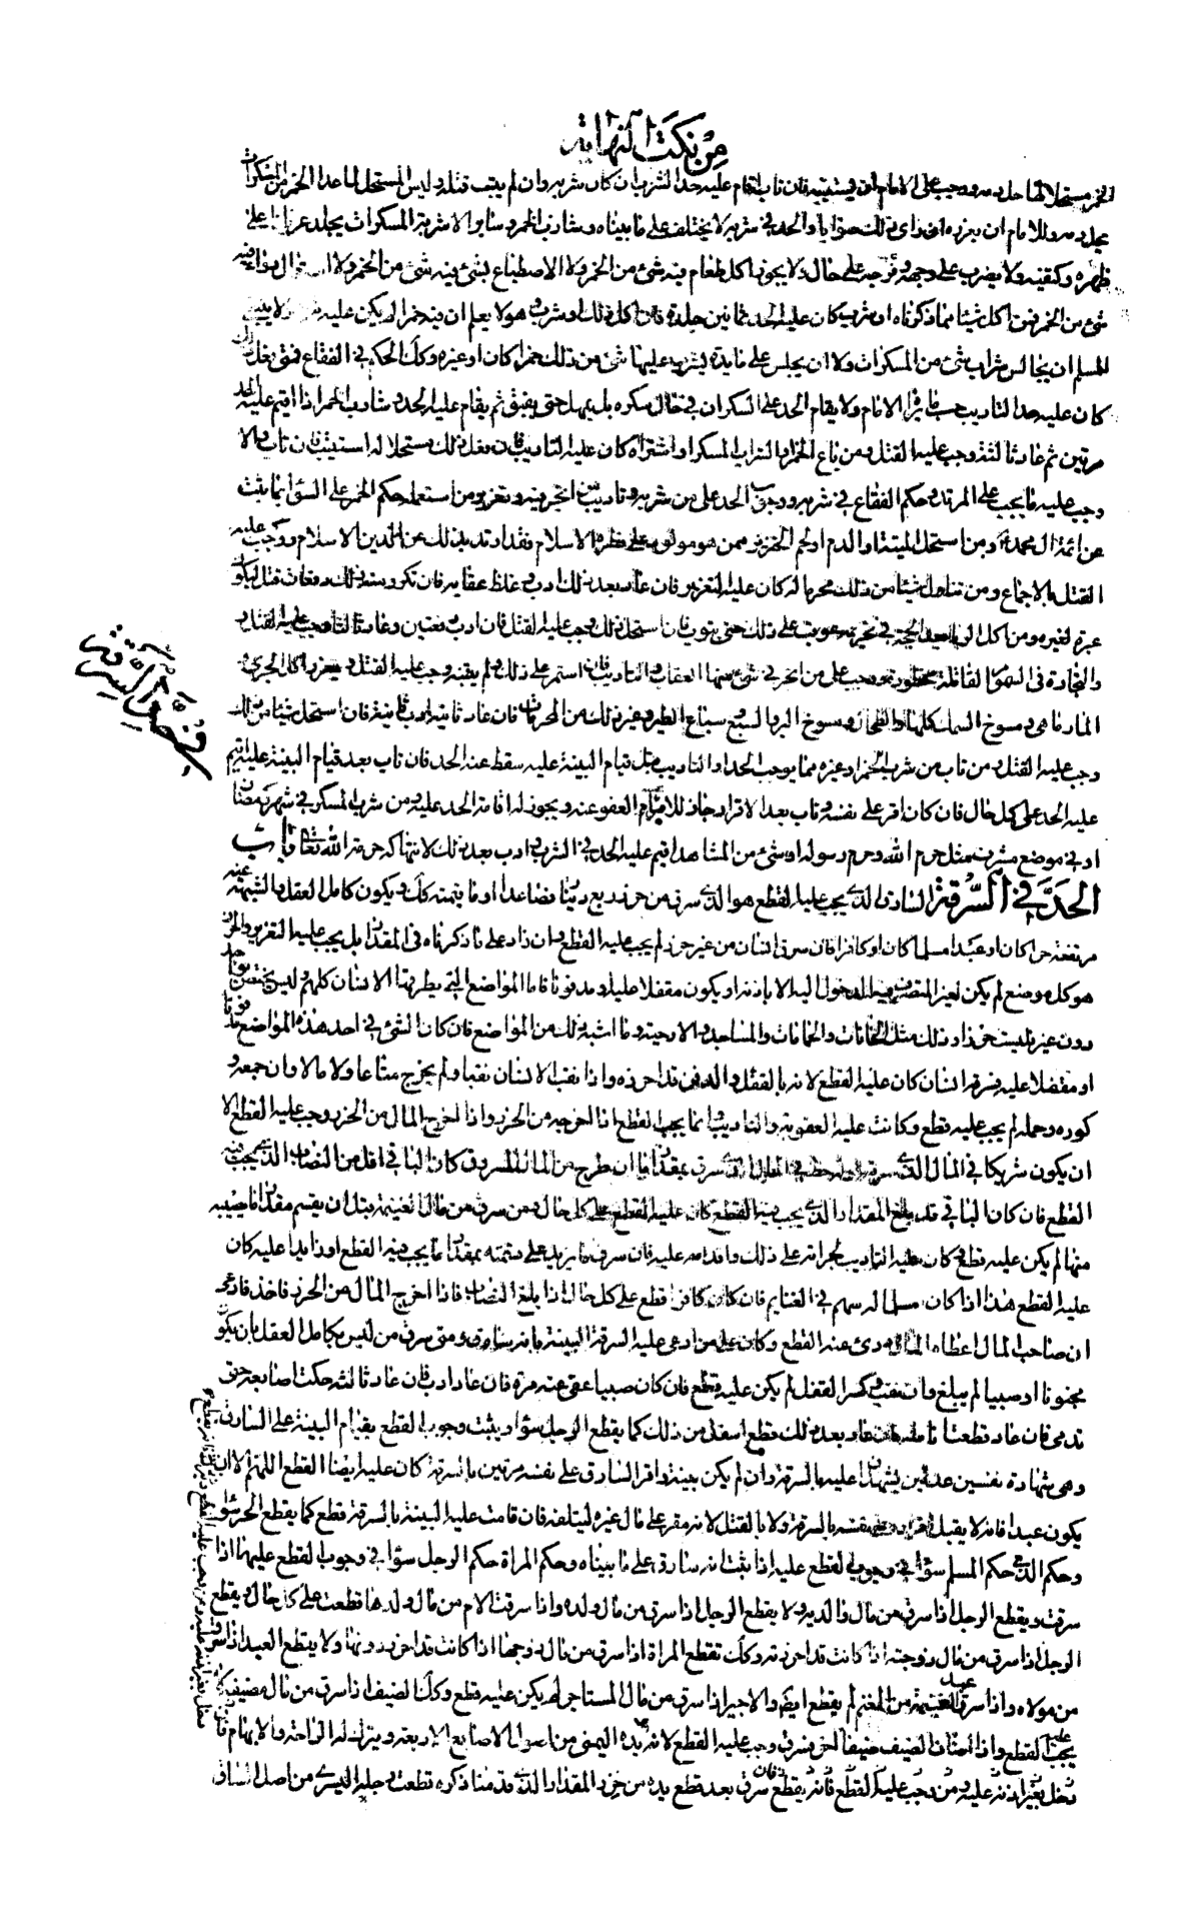 من نكت النهاية
الخمر مستحلا لها حل دمه ووجب على الامام ان يستتيبه فان تاب اقام عليه حد الشرب ان كان شربه وان لم يتب قتله وليس المستحل لما عدا الخمر من المسكرات
يحل دمه وللامام ان يعزره ان راى ذلك صوابا والحد في شربه لا يختلف على ما بيناه وشارب الخمر وساير الاشربة المسكرات يجلد عريانا على
ظهره وكتفيه ولا يضرب على وجهه وفرجه على حال ولا يجوز اكل طعام فيه شئ من الخمر ولا الاصطباغ بشئ فيه شئ من الخمر ولا استعمال دواء فيه
شئ من الخمر فمن اكل شيئا مما ذكرناه او شرب كان عليه الحد ثمانين جلدة فان اكل ذلك او شرب وهو لا يعلم ان فيه خمرا لم يكن عليه شئ ولا ينبغي
للمسلم ان يجالس شراب شئ من المسكرات ولا ان يجلس على مايدة يشرب عليها شئ من ذلك خمرا كان او غيره وكذلك الحكم في الفقاع فمتى فعل ذلك
كان عليه حد التاديب حسب ما يراه الامام ولا يقام الحد على السكران في حال سكره بل يمهل حتى يفيق ثم يقام عليه الحد وشارب الخمر اذا اقيم عليه الحد
مرتين ثم عاد ثالثة وجب عليه القتل ومن باع الخمر او الشراب المسكر او اشتراه كان عليه التاديب فان فعل ذلك مستحلا له استتيب فان تاب والا
وجب عليه ما يجب على المرتد وحكم الفقاع في شربه ووجوب الحد على من شربه وتاديب من اتجر فيه وتعزير من استعمله حكم الخمر على السؤا بما ثبت
عن ائمة ال محمد ومن استحل الميتة او الدم او لحم الخنزير ممن هو مولود على فطرة الاسلام فقد ارتد بذلك عن الدين الاسلام ووجب عليه
القتل بالاجماع ومن تناول شيئا من ذلك محرما له كان عليه التعزير فان عاد بعد ذلك ادب وغلظ عقابه فان تكرر منه ذلك دفعات قتل ليكون
عبرة لغيره ومن اكل الربا بعد الحجة في تحريمه عوقب على ذلك حتى يتوب فان استحل ذلك وجب عليه القتل فان ادب دفعتين وعاد ثالثا وجب عليه القتل و
والتجارة في السموم القاتلة محظورة ووجب على من اتجر في شئ منها العقاب والتاديب فان استمر على ذلك ولم ينته وجب عليه القتل ويعزر اكل الجري و
المارماهي ومسوخ السمك كلها والطحال ومسوخ البر والسباع وسباع الطير وغير ذلك من المحرمات فان عاد ثانية ادب ثانية فان استحل شيئا من ذلك
وجب عليه القتل ومن تاب من شرب الخمر او غيره مما يوجب الحد او التاديب قبل قيام البينة عليه سقط عنه الحد فان تاب بعد قيام البينة عليه اقيم
عليه الحد على كل حال فان كان اقر على نفسه وتاب بعد الاقرار جاز للامام العفو عنه ويجوز له اقامة الحد عليه ومن شرب المسكر في شهر رمضان
او في موضع مشرف مثل حرم الله وحرم رسوله او شئ من المشاهد اقيم عليه الحد في الشرب وادب بعد ذلك لانتهاكه حرمة الله تعالى باب
الحد في السرقة السارق الذي يجب عليه القطع هو الذي سرق من حرز ربع دينار فصاعدا او ما قيمته كذلك ويكون كامل العقل والشبهة عنه
مرتفعة حرا كان او عبدا مسلما كان او كافرا فان سرق انسان من غير حرز لم يجب عليه القطع وان زاد على ما ذكرناه في المقدار بل يجب عليه التعزير والحرز
هو كل موضع لم يكن لغير المتصرف فيه الدخول اليه الا باذنه او يكون مقفلا عليه او مدفونا فاما المواضع التي يطرقها الانسان كلهم وليس يختص بواحد
دون غيره فليست حرزا وذلك مثل الخانات والحمامات والمساجد والارحية وما اشبه ذلك من المواضع فان كان الشئ في احد هذه المواضع مدفونا
او مقفلا عليه فسرقه انسان كان عليه القطع لانه بالقفل والدفن قد احرزه واذا نقب الانسان نقبا ولم يخرج متاعا ولا مالا وان جمعه و
كوره وحمله لم يجب عليه قطع وكانت عليه العقوبة والتاديب وانما يجب القطع اذا اخرجه من الحرز واذا اخرج المال من الحرز وجب عليه القطع الا
ان يكون شريكا في المال الذي سرقه او له حظ في المال الذي سرق بمقدار ما ان طرح من المال المسروق كان الباقي اقل من النصاب الذي يجب فيه
القطع فان كان الباقي قد بلغ المقدار الذي يجب فيه القطع كان عليه القطع على كل حال ومن سرق من مال الغنيمة قبل ان يقسم مقدار ما نصيبه
منها لم يكن عليه قطع وكان عليه التاديب لجراته على ذلك واقدامه عليه فان سرق ما يزيد على قسمته بمقدار ما يجب فيه القطع او زايدا عليه كان
عليه القطع هذا اذا كان مسلما له سهم في الغنايم فان كان كافرا قطع على كل حال اذا بلغ النصاب فاذا اخرج المال من الحرز فاخذ فادعى
ان صاحب المال اعطاه المال درئ عنه القطع وكان على من ادعى عليه السرقة البينة بانه سارق ومتى سرق من ليس بكامل العقل بان يكون
مجنونا او صبيا لم يبلغ وان نقب وكسر القفل لم يكن عليه قطع فان كان صبيا عفي عنه مرة فان عاد ادب فان عاد ثالثة حكت اصابعه حتى
تدمى فان عاد قطعت انامله فان عاد بعد ذلك قطع اسفل من ذلك كما يقطع الرجل سؤا ويثبت وجوب القطع بقيام البينة على السارق
وهي شهادة نفسين عدلين يشهدان عليه بالسرقة وان لم يكن بينة واقر السارق على نفسه مرتين بالسرقة كان عليه ايضا القطع اللهم الا ان
يكون عبدا فانه لا يقبل اقراره على نفسه بالسرقة ولا بالقتل لانه مقر على مال غيره ليتلفه فان قامت عليه البينة بالسرقة قطع كما يقطع الحر سؤا
وحكم الذمي حكم المسلم سؤا في وجوب القطع عليه اذا ثبت انه سارق على ما بيناه وحكم المراة حكم الرجل سؤا في وجوب القطع عليها اذا
سرقت ويقطع الرجل اذا سرق من مال والديه ولا يقطع الرجل اذا سرق من مال ولده واذا سرقت الام من مال ولدها قطعت على كل حال ويقطع
الرجل اذا سرق من مال زوجته اذا كانت قد احرزته وكذلك تقطع المراة اذا سرقت من مال زوجها اذا كانت قد احرزه دونها ولا يقطع العبد اذا سرق
من مولاه واذا سرق عبد الغنيمة من المغنم لم يقطع ايضا والاجير اذا سرق من مال المستاجر له لم يكن عليه قطع وكذلك الضيف اذا سرق من مال مضيفه لا
يجب عليه القطع واذا اضاف الضيف ضيفا اخر فسرق وجب عليه القطع لانه يده اليمنى من اصول الاصابع الاربعة ويترك له الراحة والابهام
دخل بغير اذنه عليه ومن وجب عليه القطع فانه يقطع فان سرق بعد قطع يده من حرز المقدار الذي قدمنا ذكره قطعت رجله اليسرى من اصل الساق
في حد السرقة